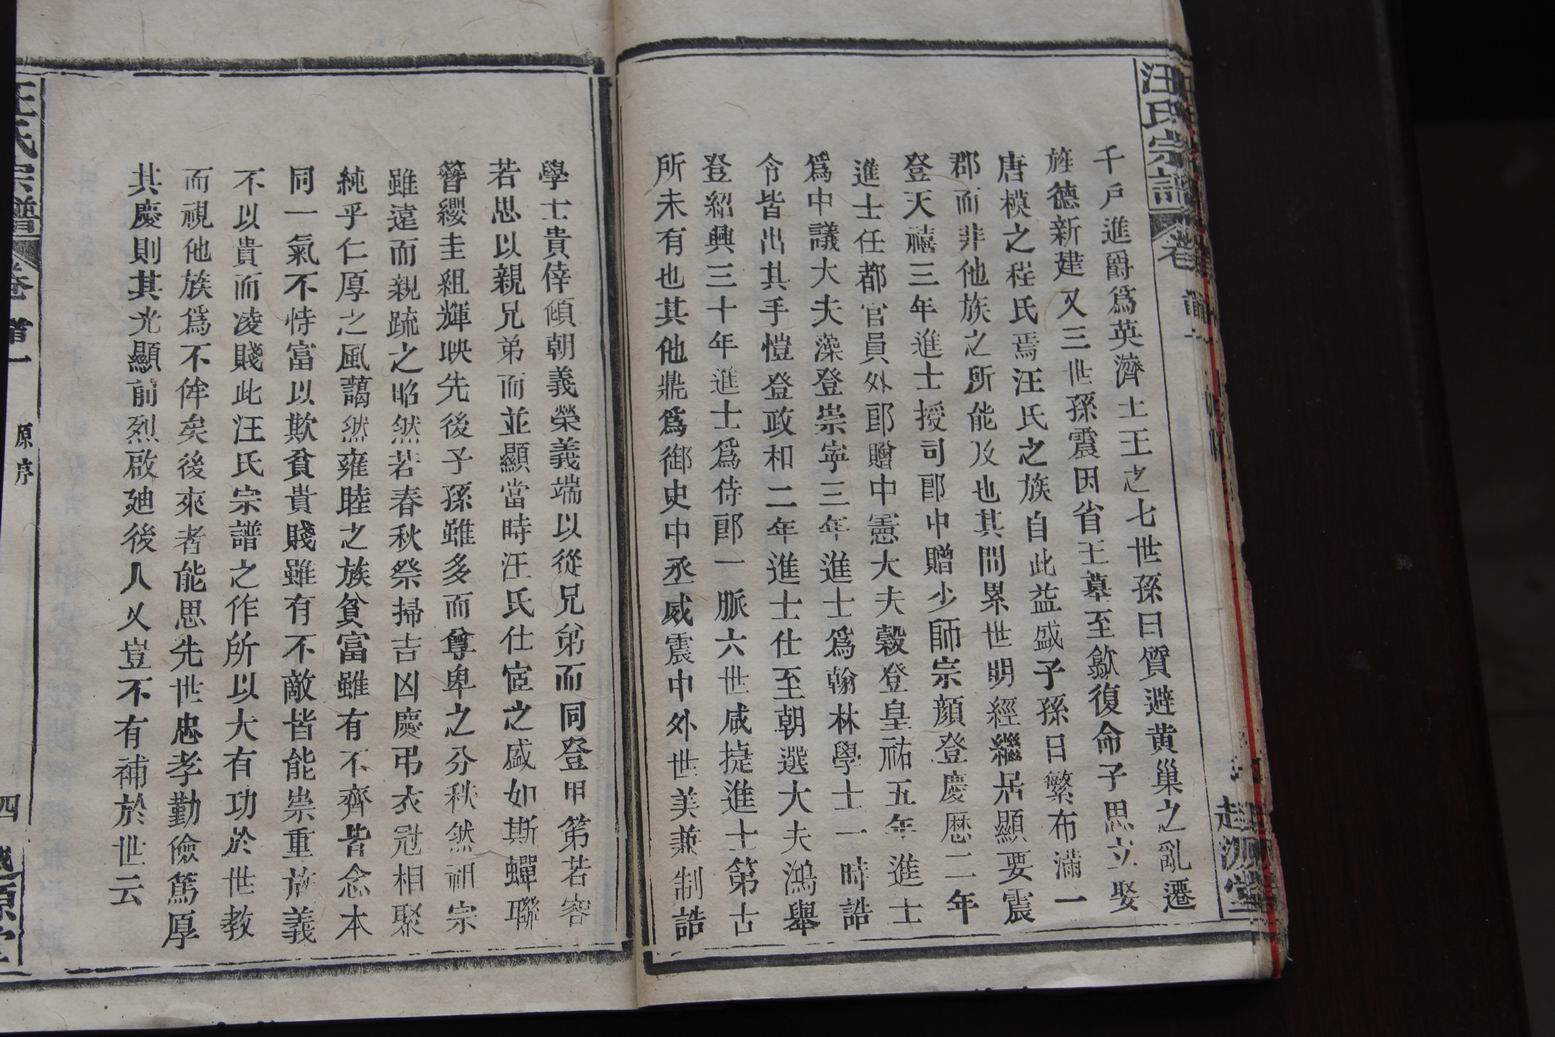 汪氏宗譜
卷首一
越源堂
千戶進爵爲英濟士王之七世孫曰質避黄巢之亂遷
旌德新建又三世孫震因省王墓至歙復命子思立娶
唐模之程氏焉汪氏之族自此益盛子孫日繁布滿一
郡而非他族之所能及也其間累世明經繼居顯要震
登天禧三年進士授司郎中贈少師宗顔登慶歷二年
進士任都官員外郎贈中憲大夫榖登皇祐五年進士
爲中議大夫藻登崇寧三年進士爲翰林學士一時誥
令皆出其手愷登政和二年進士仕至朝選大夫鴻舉
登紹興三十年進士爲侍郎一脈六世咸㨗進士第古
所未有也其他鼎爲御史中丞威震中外世美兼制誥
學士貴倖傾朝義榮義端以從兄弟而同登甲第若容
若思以親兄弟而並顯當時汪氏仕宦之盛如斯蟬聯
簪纓圭組輝映先後子孫雖多而尊卑之分秩然祖宗
雖遠而親疏之昭然若春秋祭掃吉凶慶弔衣冠相聚
純乎仁厚之風藹然雍睦之族貧富雖有不齊皆念本
同一氣不恃富以欺貧貴賤雖有不敵皆能崇重族義
不以貴而凌賤此汪氏宗譜之作所以大有功於世教
而視他族爲不侔矣後來者能思先世忠孝勤儉篤厚
其慶則其光顯前烈啟廸後人乂豈不有補於世云
汪氏宗譜
卷首一
原序
四
越源堂